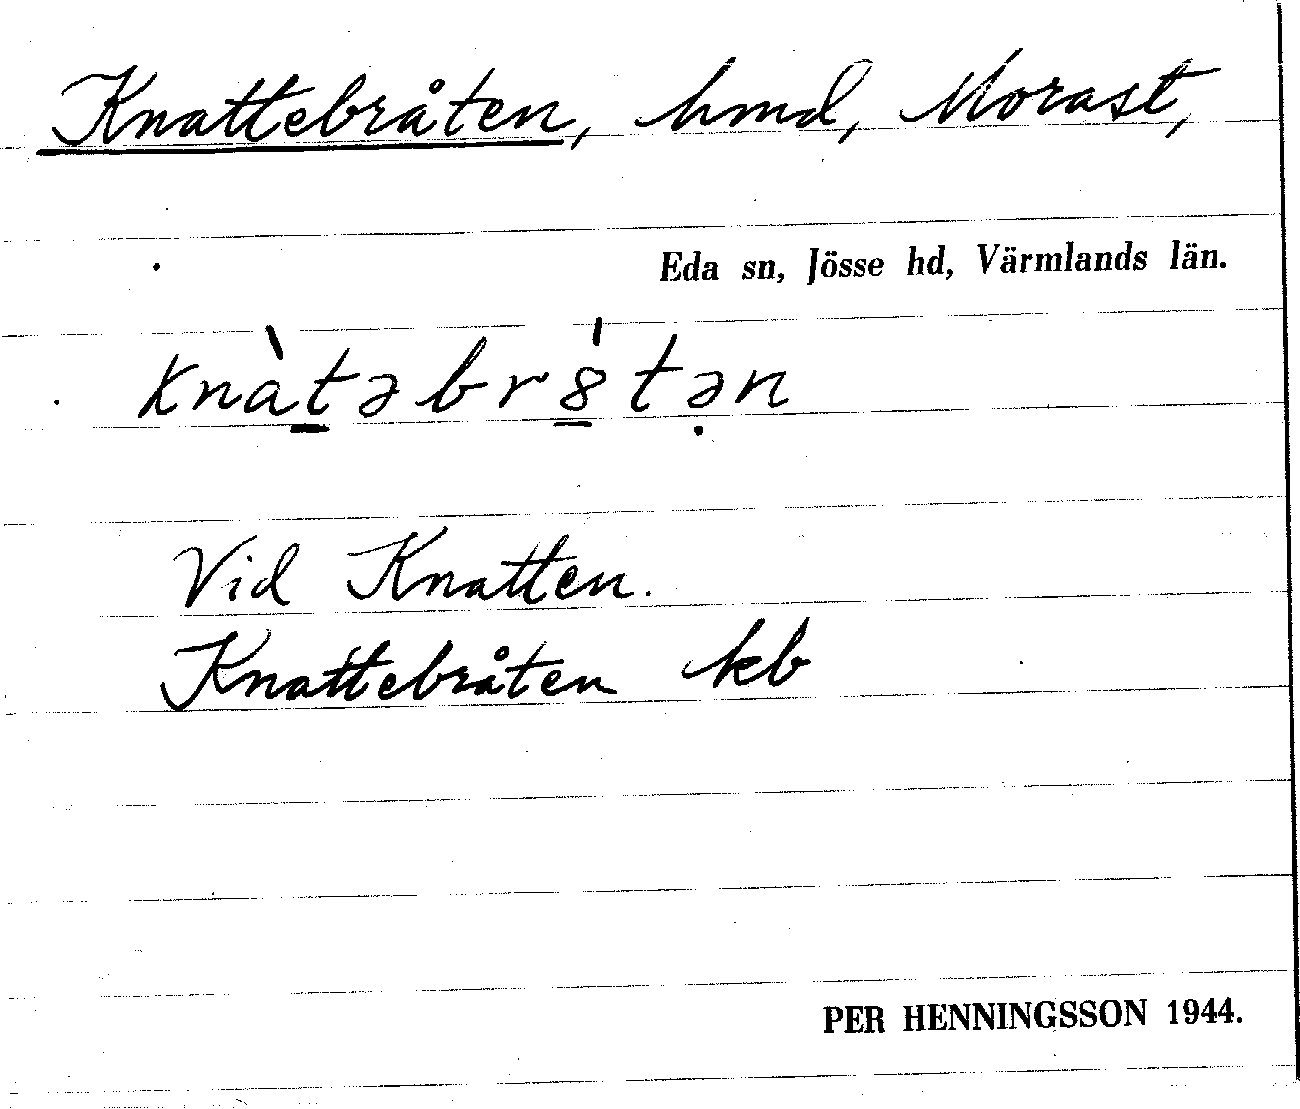 Knattebråten, hmd, Morast,
Eda sn, Jösse hd, Värmlands län.
knàt̲əbr8̲́tə̣n
Vid Knatten.
Knattebråten kb
PER HENNINGSSON 1944.